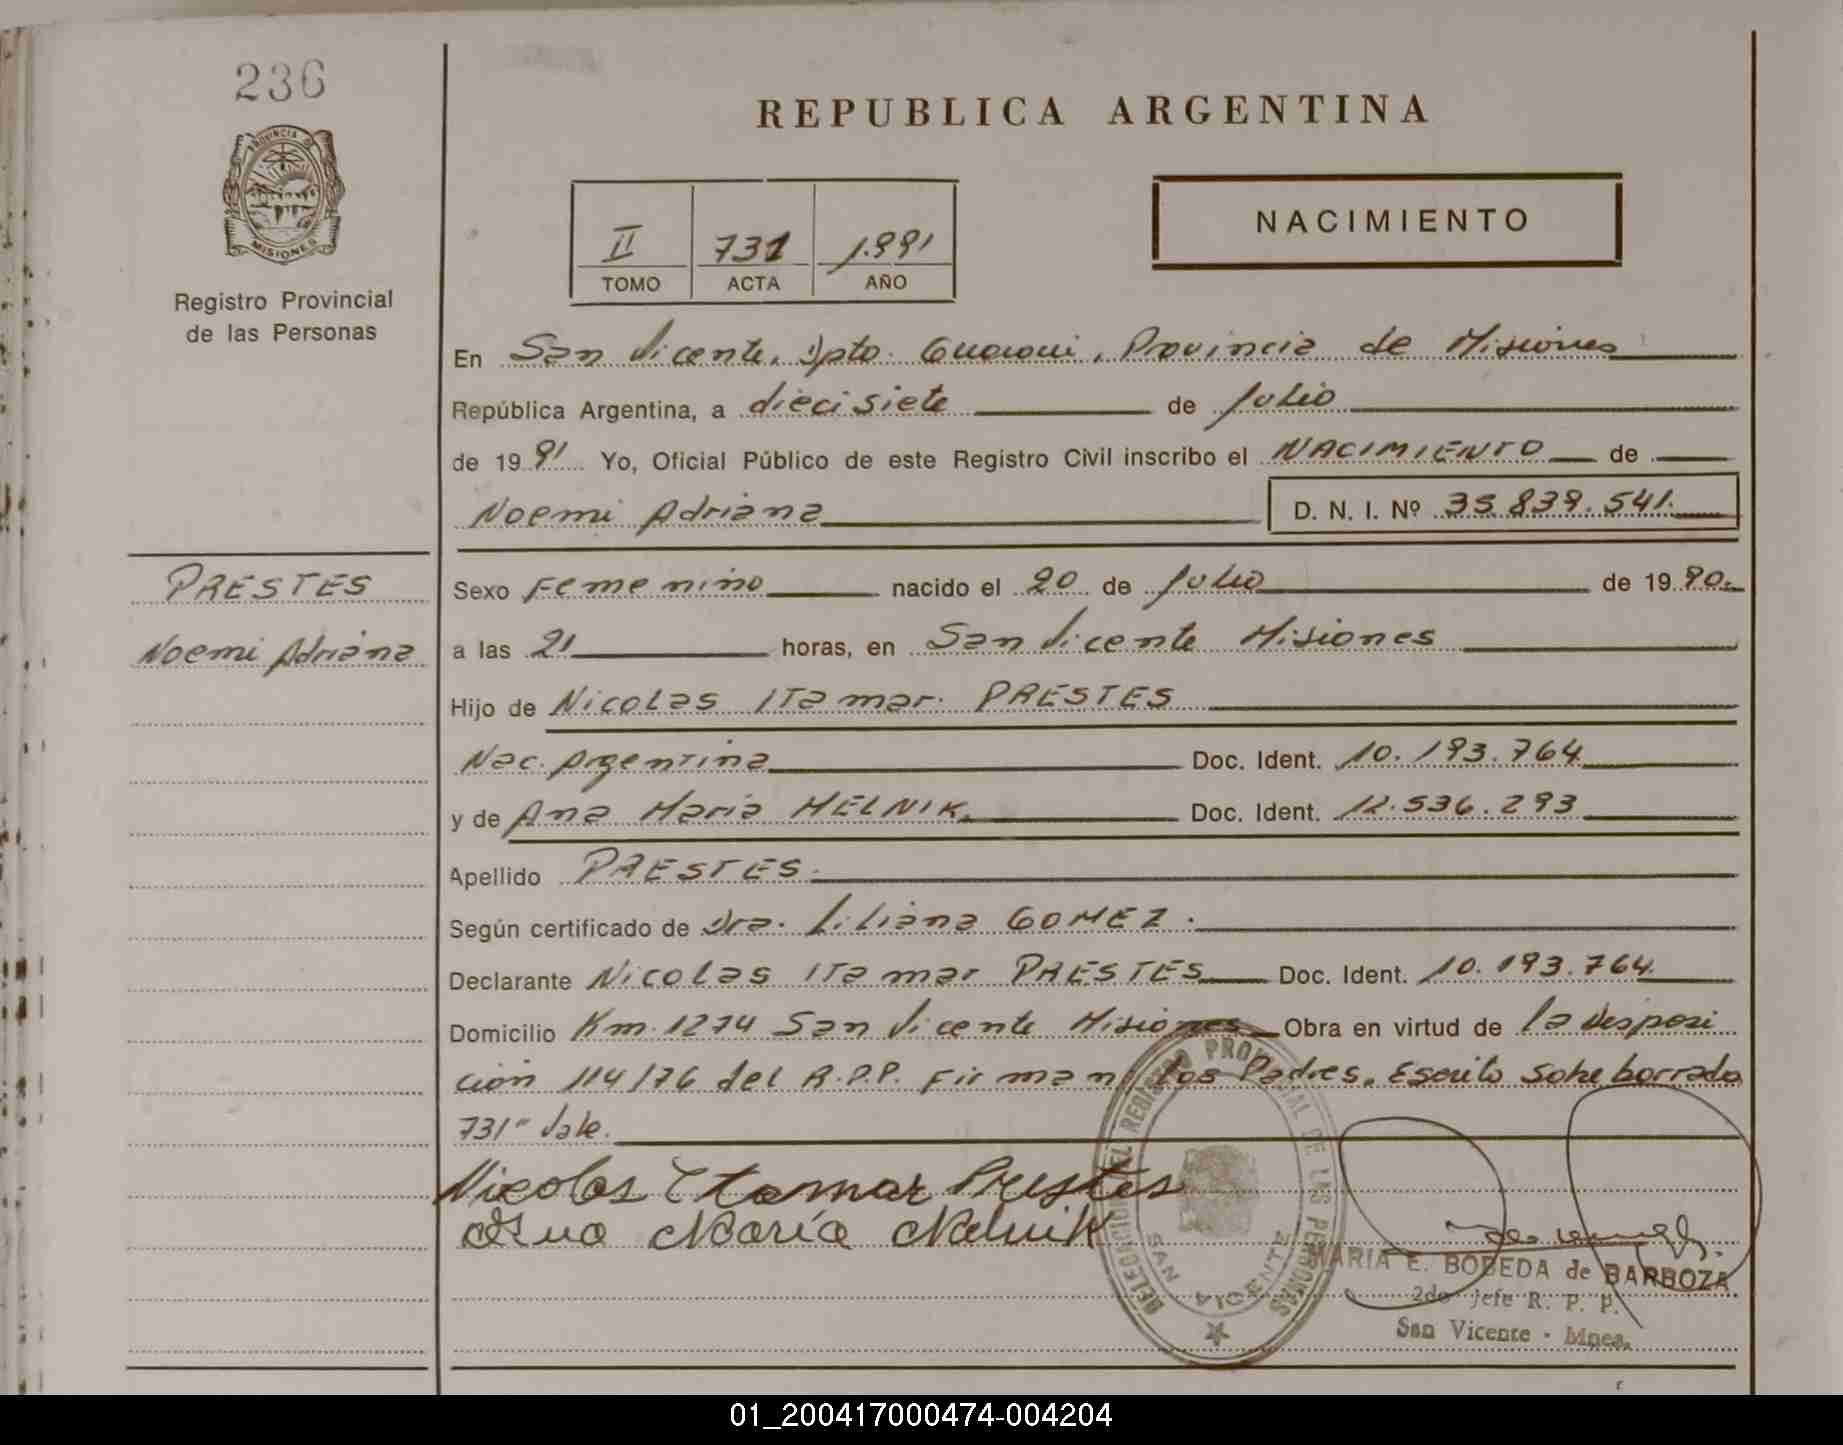 236
PROVINCIA
MISIONES
Registro Provincial
de las Personas
REPUBLICA ARGENTINA
II 731 1.991
TOMO ACTA AÑO
NACIMIENTO
En San Vicente, Dpto. Guarani, Provincia de Misiones
República Argentina, a diecisiete de Julio
de 1991 Yo, Oficial Público de este Registro Civil inscribo el NACIMIENTO de
Noemi Adriana D. N. I. Nº 35.839.541.
PRESTES
Noemi Adriana
Sexo Femenino nacido el 20 de Julio de 1990.
a las 21 horas, en San Vicente Misiones
Hijo de Nicolas ITamar PRESTES
Nac. ArgenTina Doc. Ident. 10.193.764
y de Ana Maria MELNIK. Doc. Ident. 12.536.293
Apellido PRESTES.
Según certificado de Dra. Liliana GOMEZ.
Declarante Nicolas ITamar PRESTES Doc. Ident. 10.193.764
Domicilio Km. 1274 San Vicente Misiones Obra en virtud de la Disposi
ción 114/76 del R.P.P. Firman los Padres. Escrito sobre borrado
731" Vale.
Nicolas Itamar Prestes
Ana María Melnik
DELEGACION DEL REGISTRO PROVINCIAL DE LAS PERSONAS
SAN VICENTE
MARIA E. BOBEDA de BARBOZA
2do Jefe R. P. P.
San Vicente - Mnes.
01_200417000474-004204